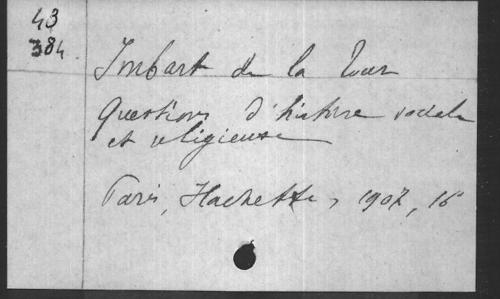 43
384
Imbart de la Tour
Questions d'histoire sociale
et religieuse
Paris, Hachette, 1907, 16°